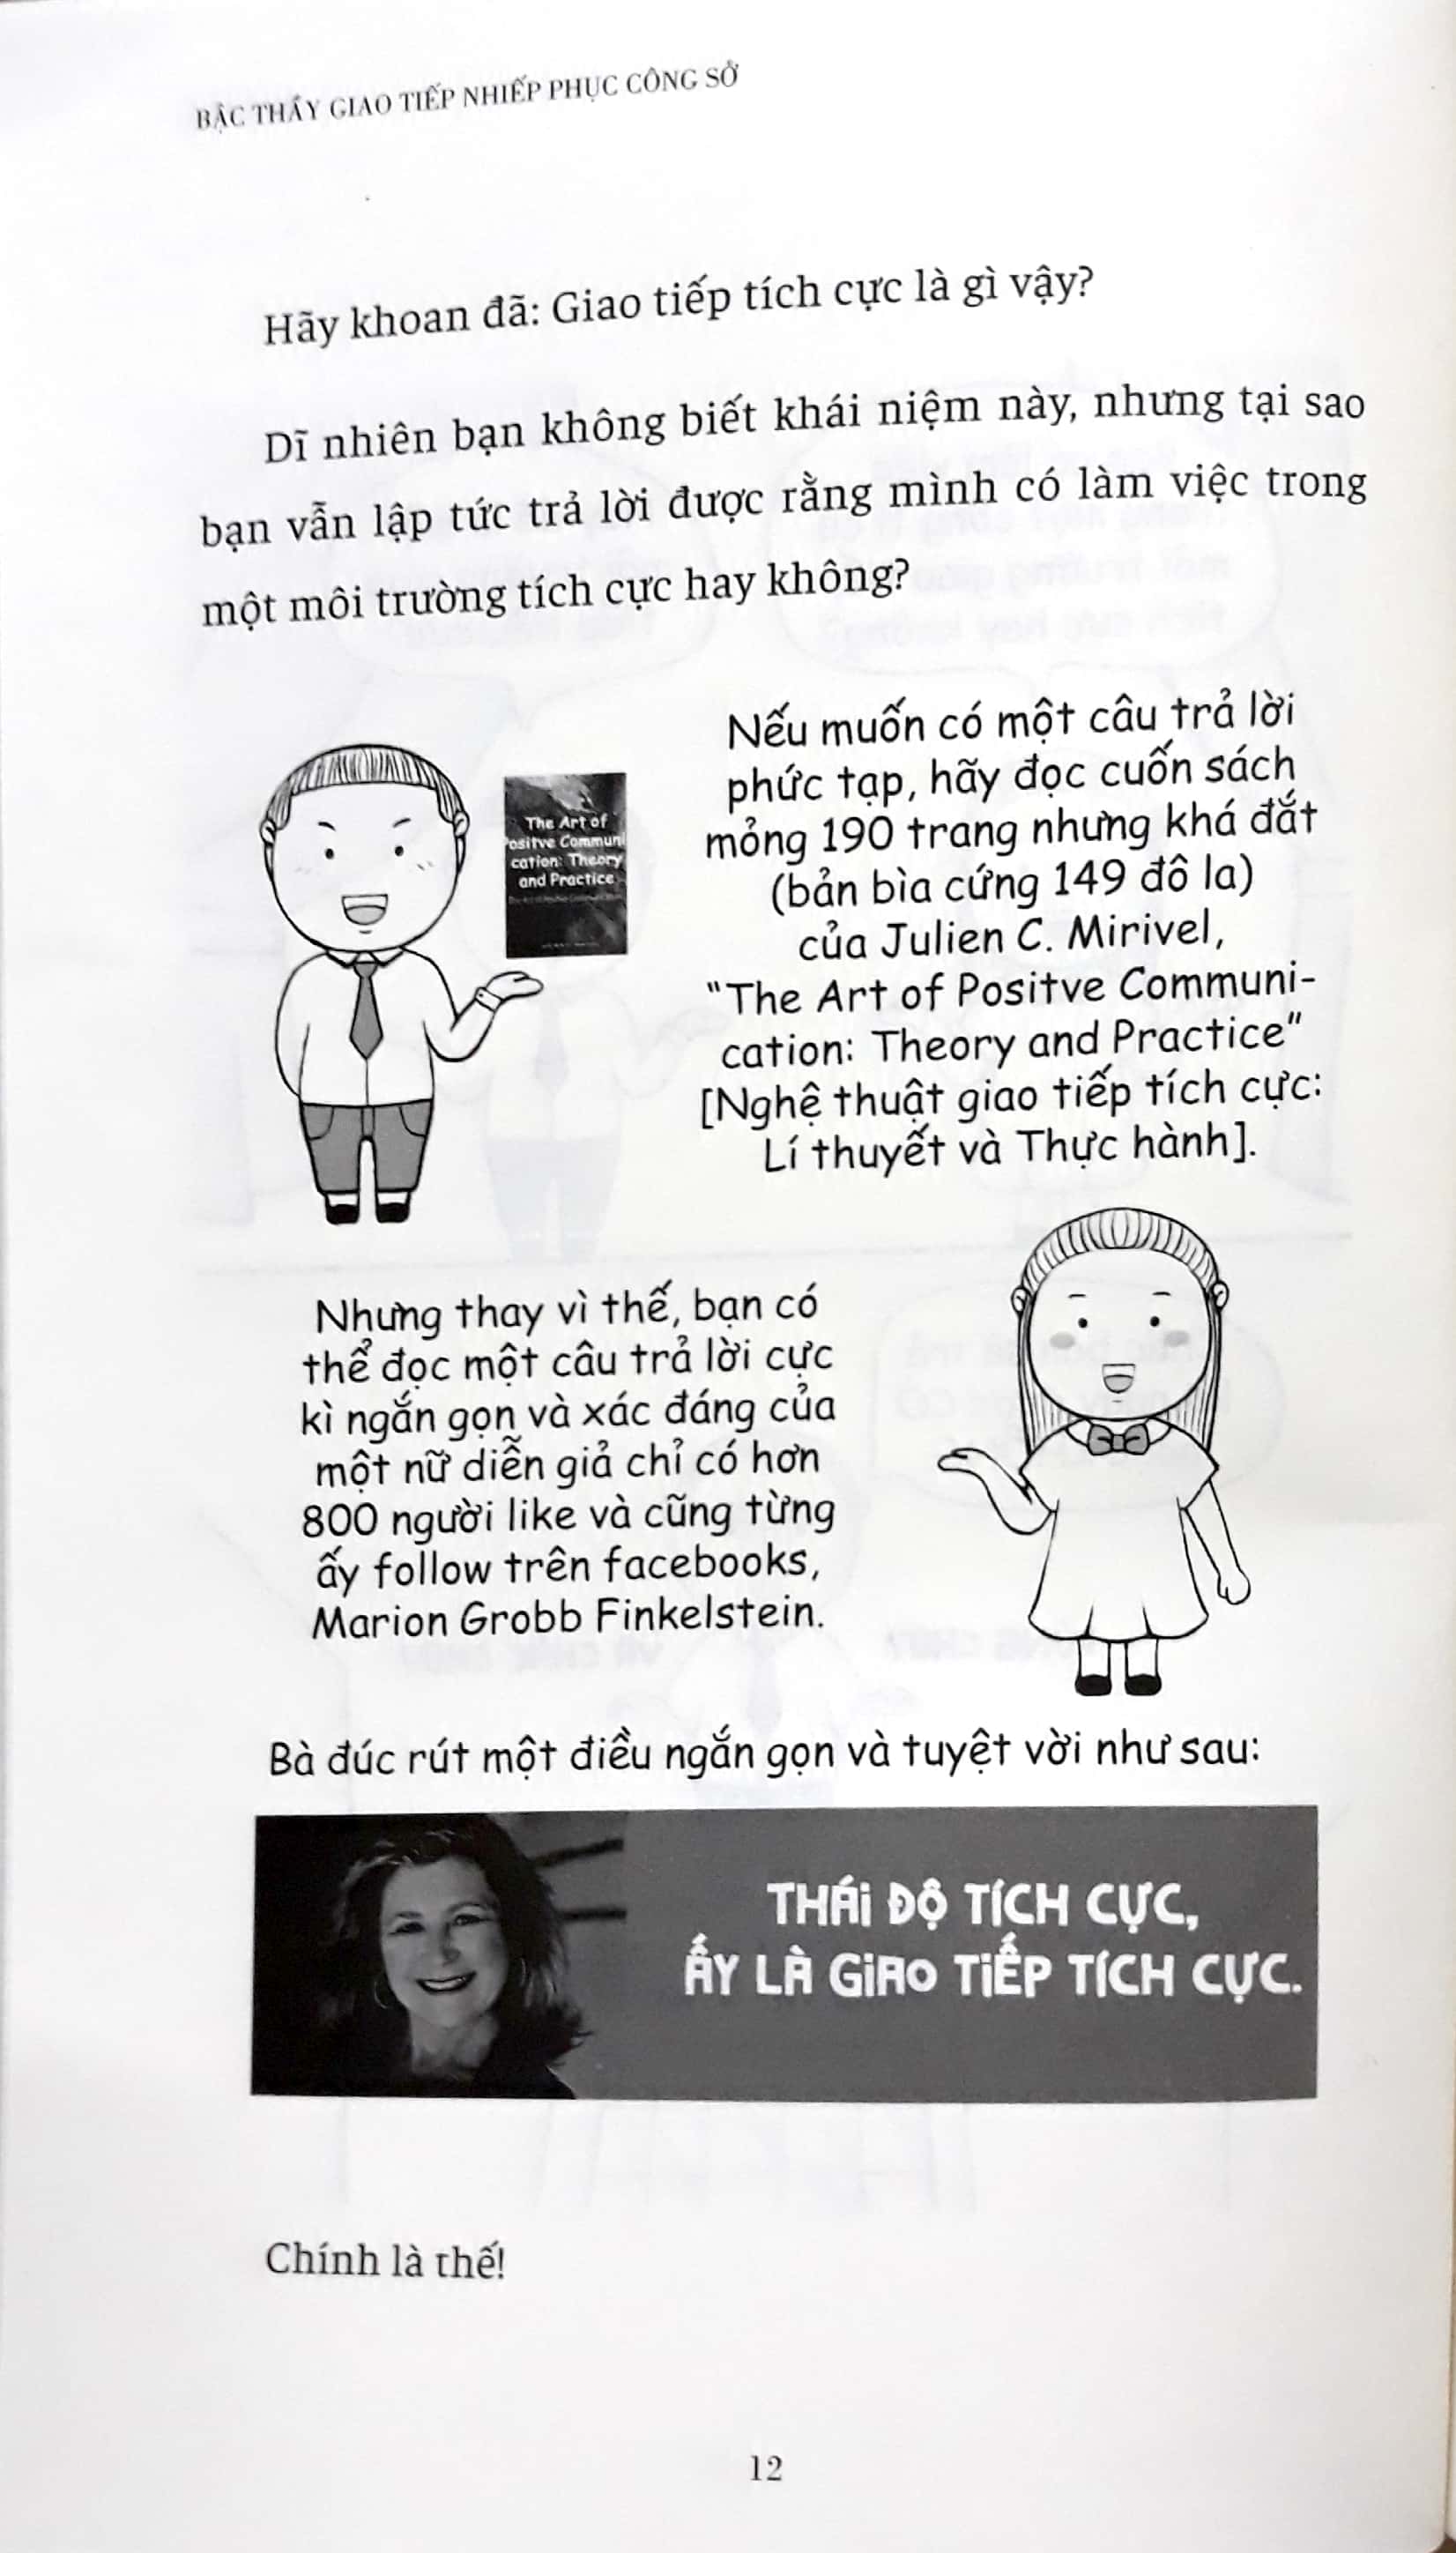 BẬC THẦY GIAO TIẾP NHIẾP PHỤC CÔNG SỞ
Hãy khoan đã: Giao tiếp tích cực là gì vậy?
Dĩ nhiên bạn không biết khái niệm này, nhưng tại sao
bạn vẫn lập tức trả lời được rằng mình có làm việc trong
một môi trường tích cực hay không?
The Art of
Positve Communi
cation: Theory
and Practice
Nếu muốn có một câu trả lời
phức tạp, hãy đọc cuốn sách
mỏng 190 trang nhưng khá đắt
(bản bìa cứng 149 đô la)
của Julien C. Mirivel,
"The Art of Positve Communi-
cation: Theory and Practice"
[Nghệ thuật giao tiếp tích cực:
Lí thuyết và Thực hành].
Nhưng thay vì thế, bạn có
thể đọc một câu trả lời cực
kì ngắn gọn và xác đáng của
một nữ diễn giả chỉ có hơn
800 người like và cũng từng
ấy follow trên facebooks,
Marion Grobb Finkelstein.
Bà đúc rút một điều ngắn gọn và tuyệt vời như sau:
THÁI ĐỘ TÍCH CỰC,
ẤY LÀ GIAO TIẾP TÍCH CỰC.
Chính là thế!
12